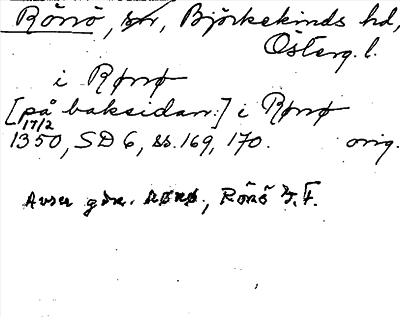 Rönö, sn, Björkekinds hd,
Österg. l.
i Rønø
[på baksidan:] i Rønø
17/2
1350, SD 6, ss. 169, 170. orig.
Avser gdn. Rönö, Rönö